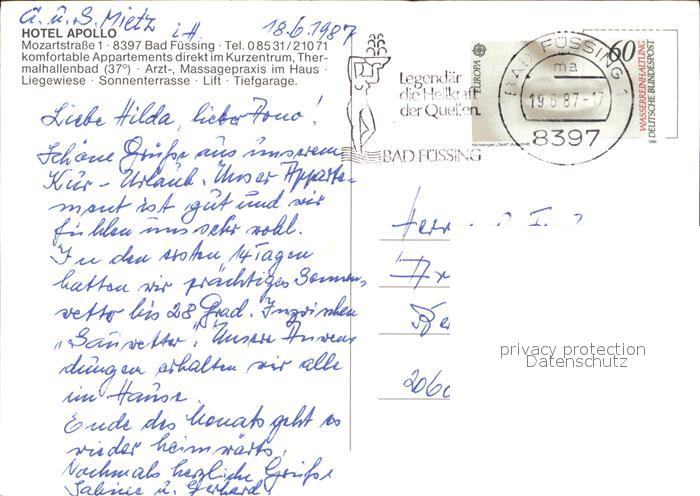 A. u. S. Mietz i.H. 18.6.1987
HOTEL APOLLO
Mozartstraße 1 · 8397 Bad Füssing · Tel. 08531/21071
komfortable Appartements direkt im Kurzentrum, Ther-
malhallenbad (37°) · Arzt-, Massagepraxis im Haus ·
Liegewiese · Sonnenterrasse · Lift · Tiefgarage.
Liebe Hilda, lieber Arno!
Schöne Grüße aus unserem
Kur-Urlaub. Unser Apparte-
ment ist gut und wir
fühlen uns sehr wohl.
In den ersten 14 Tagen
hatten wir prächtiges Sonnen-
wetter bis 28 Grad. Inzwischen
„Sauwetter". Unsere Anwen
dungen erhalten wir alle
im Hause.
Ende des Monats geht es
wieder heimwärts.
Nochmals herzliche Grüße
Sabine u. Gerhard
Legendär
die Heilkraft
der Quellen.
BAD FÜSSING
EUROPA
60
WASSERREINHALTUNG
DEUTSCHE BUNDESPOST
BAD FÜSSING 1
ma
19.6.87-17
8397
Herr
206
privacy protection
Datenschutz